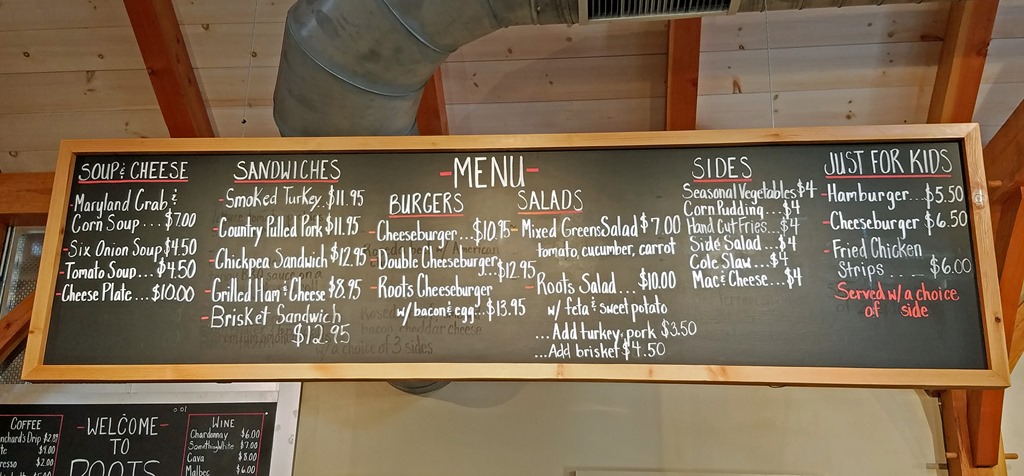 SOUP & CHEESE
- Maryland Crab &
Corn Soup... $7.00
- Six Onion Soup $4.50
- Tomato Soup... $4.50
- Cheese Plate... $10.00
SANDWICHES
- Smoked Turkey. $11.95
- Country Pulled Pork $11.95
- Chickpea Sandwich $12.95
- Grilled Ham & Cheese $8.95
- Brisket Sandwich
$12.95
- MENU -
BURGERS
- Cheeseburger... $10.95
- Double Cheeseburger
... $12.95
- Roots Cheeseburger
w/ bacon & egg... $13.95
SALADS
- Mixed Greens Salad $7.00
tomato, cucumber, carrot
- Roots Salad.... $10.00
w/ feta & sweet potato
...Add turkey, pork $3.50
...Add brisket $4.50
SIDES
Seasonal Vegetables $4
Corn Pudding... $4
Hand Cut Fries... $4
Side Salad... $4
Cole Slaw... $4
Mac & Cheese... $4
JUST FOR KIDS
- Hamburger.. $5.50
- Cheeseburger $6.50
- Fried Chicken
Strips.... $6.00
Served w/ a choice
of side
COFFEE
Drip
$4.00
$2.00
- WELCOME -
TO
ROOTS
WINE
Chardonnay $6.00
Something White $7.00
Cava $8.00
Malbec $6.00